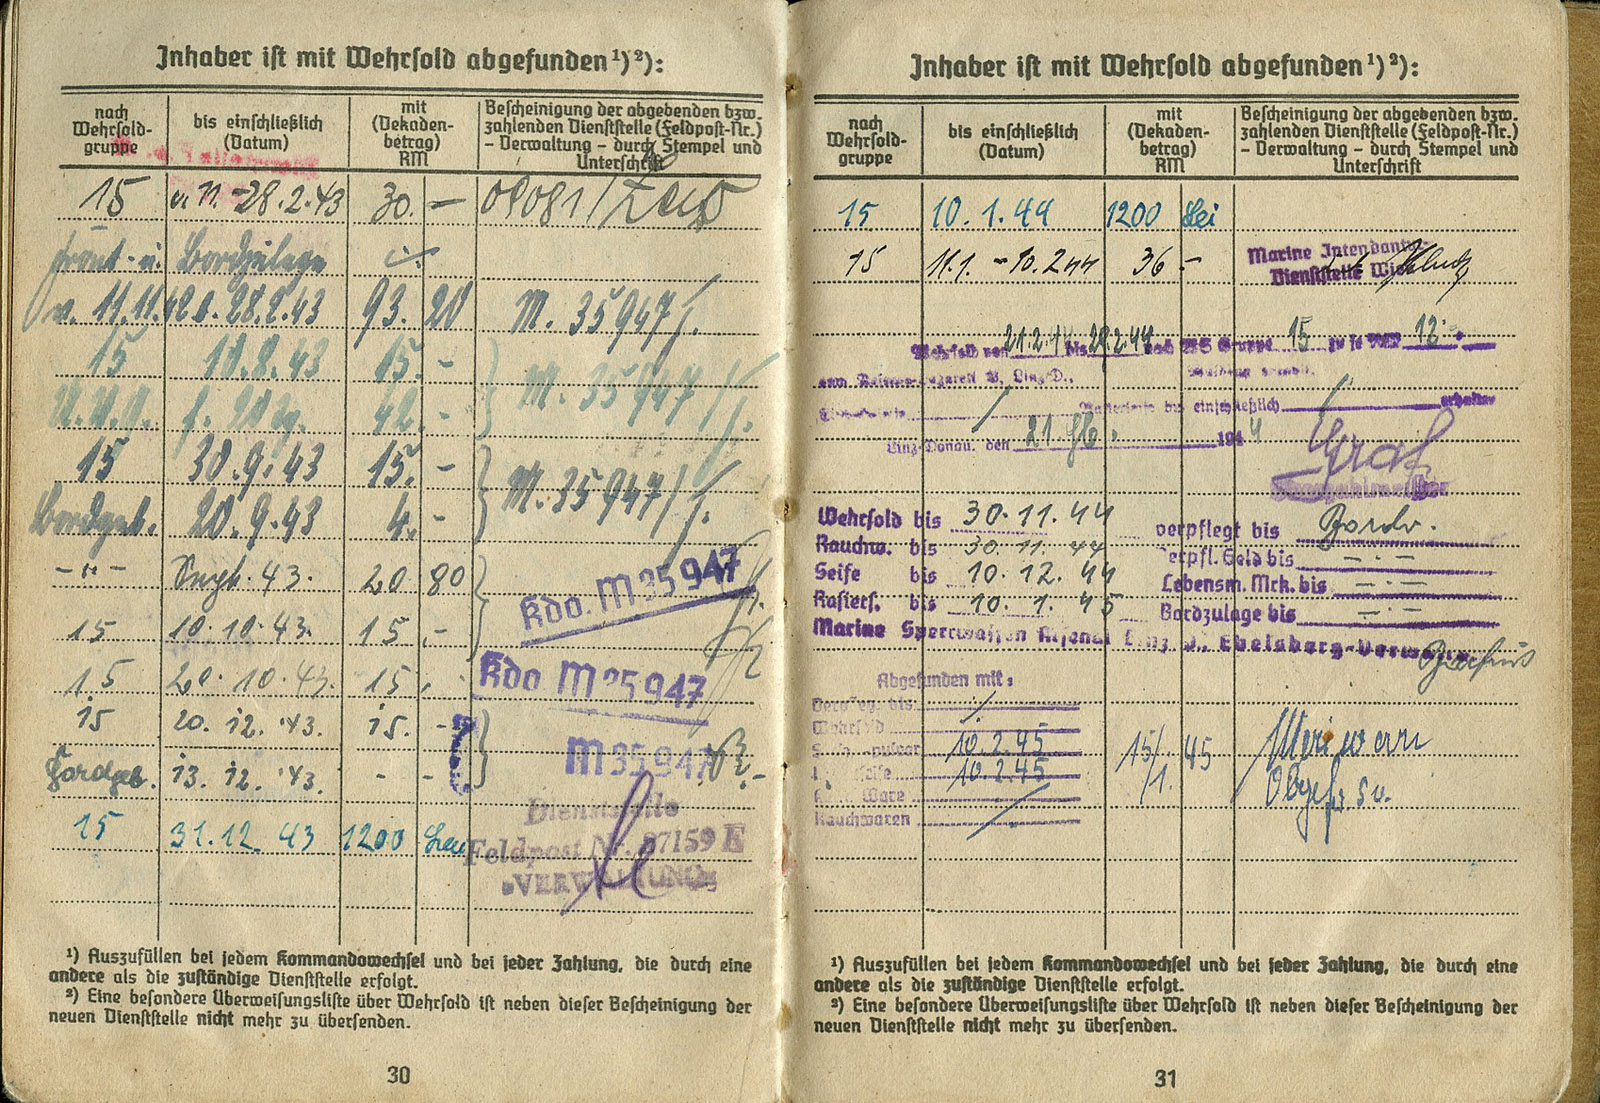 Inhaber ist mit Wehrsold abgefunden¹)²):
nach Wehrsold-gruppe
bis einschließlich (Datum)
mit (Dekaden-betrag) RM
Bescheinigung der abgebenden bzw.
zahlenden Dienststelle (Feldpost-Nr.)
- Verwaltung - durch Stempel und
Unterschrift
15 v. 11.-28.2.43 30. -
Front- u. Bordzulage
v. 11.11.42 b. 28.2.43 93. 20 M. 35947
15 10.8.43 15. - M. 35947
42. -
15 30.9.43 15. - M. 35947
Bordgeb. 20.9.43 4. -
-"- Sept. 43. 20 80 Kdo. M 35947
15 10.10.43. 15. -
15 20.10.43. 15. Kdo M 35947
15 20.12.43. 15. - M 35947
Bordgeb. 13.12.43. - -
15 31.12.43 1200 Lei
Dienststelle
Feldpost Nr. 07159 E
"VERWALTUNG"
¹) Auszufüllen bei jedem Kommandowechsel und bei jeder Zahlung, die durch eine
andere als die zuständige Dienststelle erfolgt.
²) Eine besondere Überweisungsliste über Wehrsold ist neben dieser Bescheinigung der
neuen Dienststelle nicht mehr zu übersenden.
30
Inhaber ist mit Wehrsold abgefunden¹)²):
nach Wehrsold-gruppe
bis einschließlich (Datum)
mit (Dekaden-betrag) RM
Bescheinigung der abgebenden bzw.
zahlenden Dienststelle (Feldpost-Nr.)
- Verwaltung - durch Stempel und
Unterschrift
15 10.1.44 1200 Lei
15 11.1.-10.2.44 36 - Marine Intendantur-
Dienststelle Wien
Wehrsold von 21.2.44 bis 29.2.44 nach WS Gruppe 15 zu je RM 12.-
bis einschließlich erhalten
Linz-Donau, den 21. Feb. 1944
Graf
Oberzahlmeister
Wehrsold bis 30.11.44 verpflegt bis
Rauchw. bis 30.11.44 Verpfl. Geld bis -·-
Seife bis 10.12.44 Lebensm. Mrk. bis -·-
Rasiers. bis 10.1.45 Bordzulage bis -·-
Marine Sperrwaffen Arsenal Linz D., Ebelsberg-Verwaltung
Abgefunden mit:
Wehrsold
10.2.45 15/1. 45
10.2.45
Rauchwaren
¹) Auszufüllen bei jedem Kommandowechsel und bei jeder Zahlung, die durch eine
andere als die zuständige Dienststelle erfolgt.
²) Eine besondere Überweisungsliste über Wehrsold ist neben dieser Bescheinigung der
neuen Dienststelle nicht mehr zu übersenden.
31